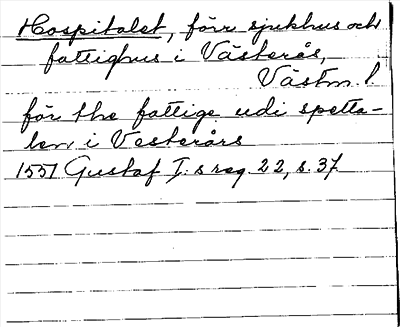 Hospitalet, förr sjukhus och
fattighus i Västerås,
Västm l.
för the fattige udi spetta-
len i Vesterårs
1551 Gustaf I:s reg. 22, s. 37